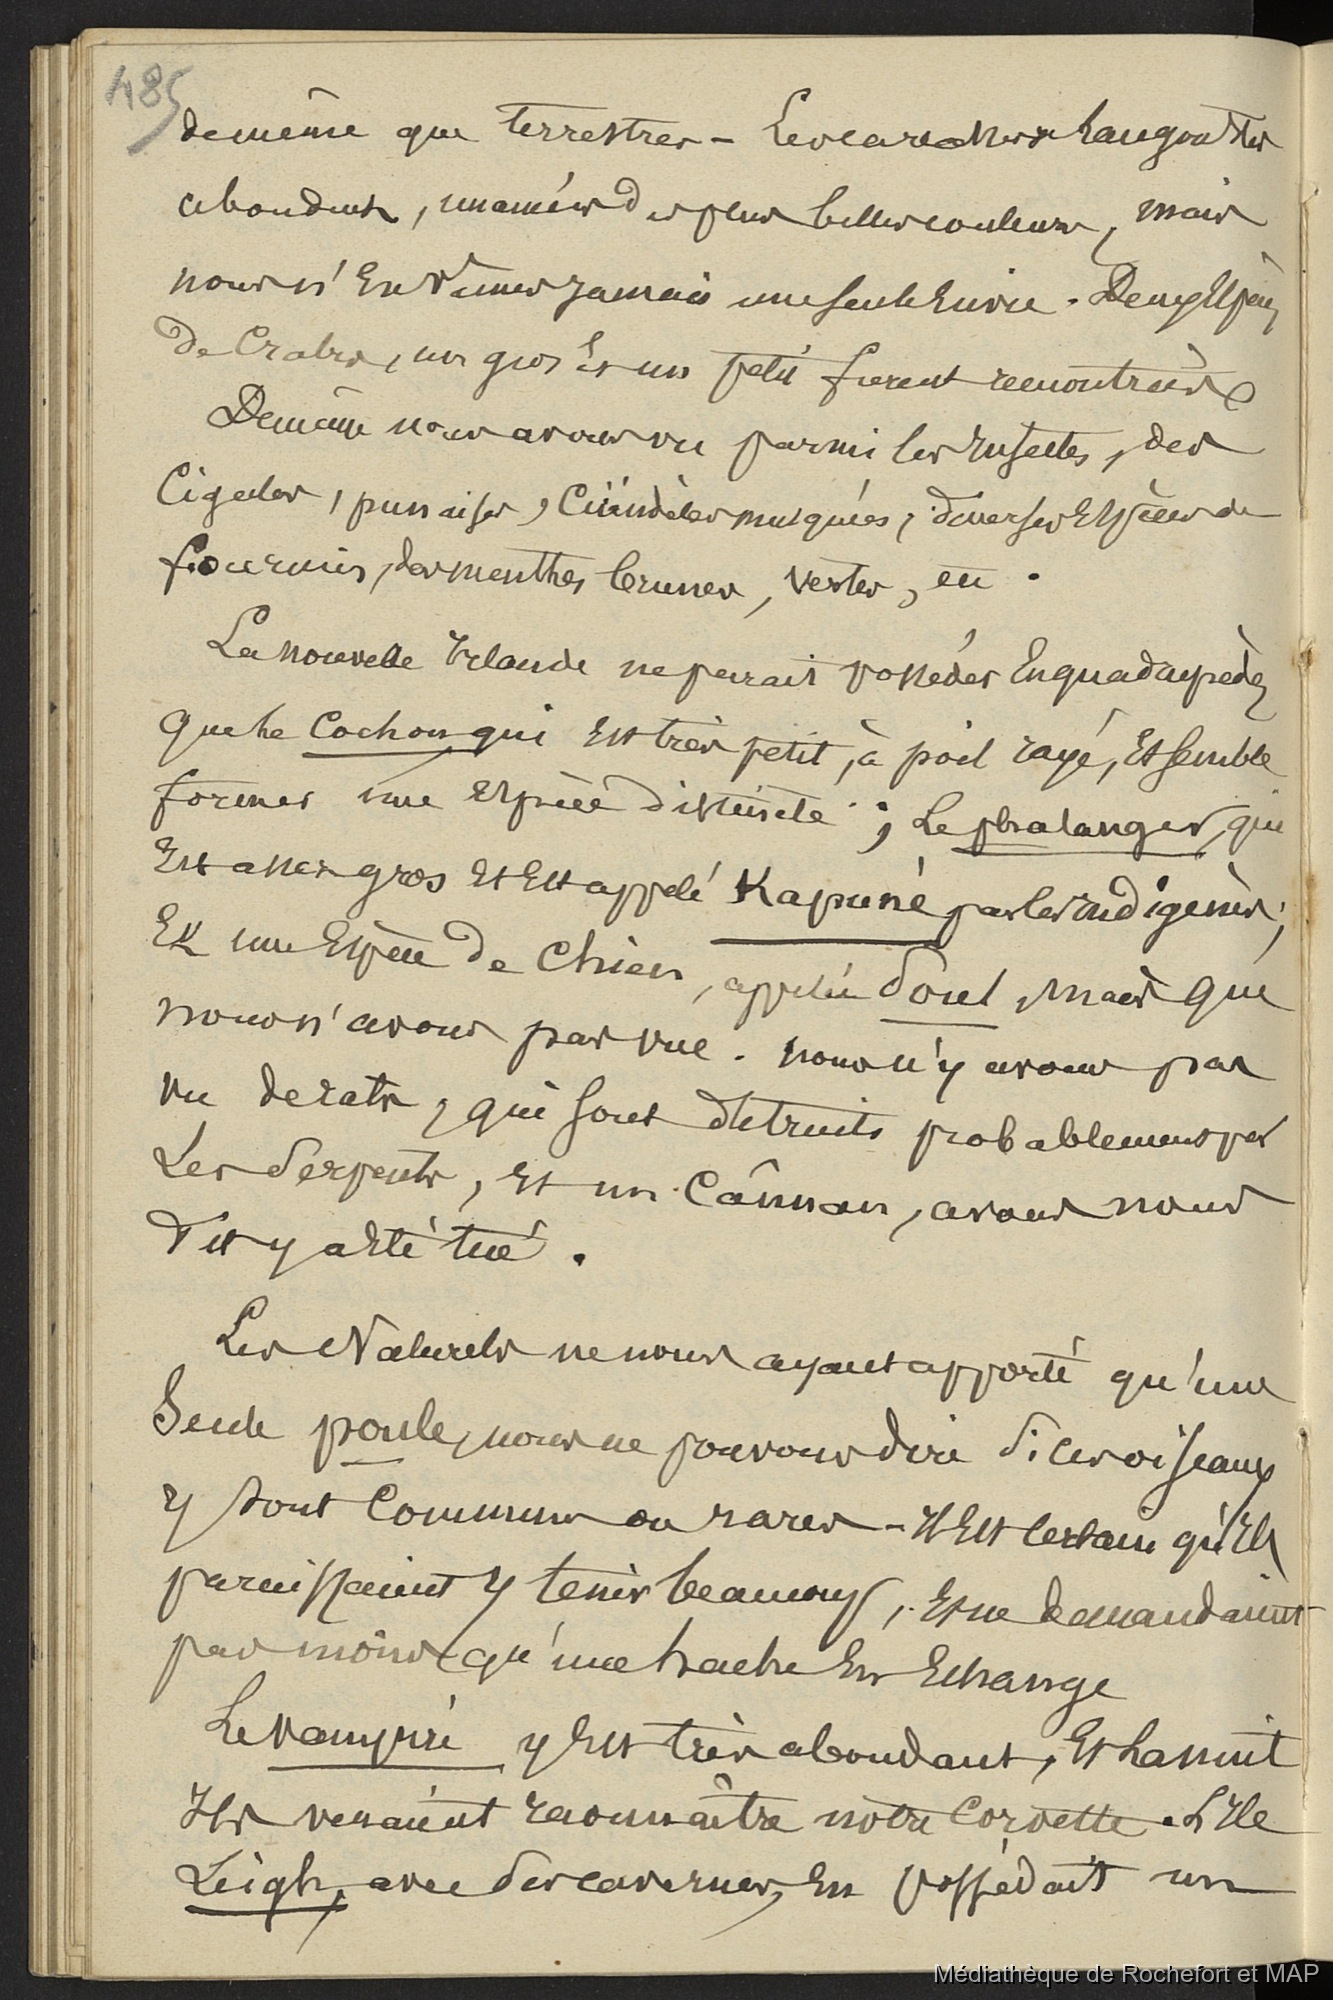 485
de même que terrestres - Les langoustes
abondent, des plus belles couleurs, mais
nous n'en vîmes jamais une seule envie. Deux Espèces
de Crabes, un gros Et un petit furent rencontrées
De même nous avons vu parmi les Insectes, des
Cigales, punaises, Cicindèles musquées, diverses Espèces de
fourmis, des menthes brunes, vertes, etc.
La nouvelle Irlande ne parait posséder En quadrupèdes
que le Cochon qui Est très petit, à poil rayé, Et semble
former une Espèce distincte ; Le phalanger, qui
Est assez gros Et Est appelé Kapuné par les Indigènes ;
Et une Espèce de Chien, appelée Poul, mais que
nous n'avons pas vue. nous n'y avons pas
vu de rats, qui sont détruits probablement par
Les Serpents, Et un Câïman, avons nous
dit y a Eté tué.
Les Naturels ne nous ayant apporté qu'une
Seule poule, nous ne pouvons dire si ces oiseaux
y sont Communs ou rares - Il Est certain qu'Ils
paraissaient y tenir beaucoup, Et ne demandaient
pas moins qu'une hache En Echange
Le vampire y Est très abondant, Et la nuit
Ils venaient reconnaître notre Corvette. L'Ile
Leigh, avec des cavernes, En possédait un
Médiathèque de Rochefort et MAP